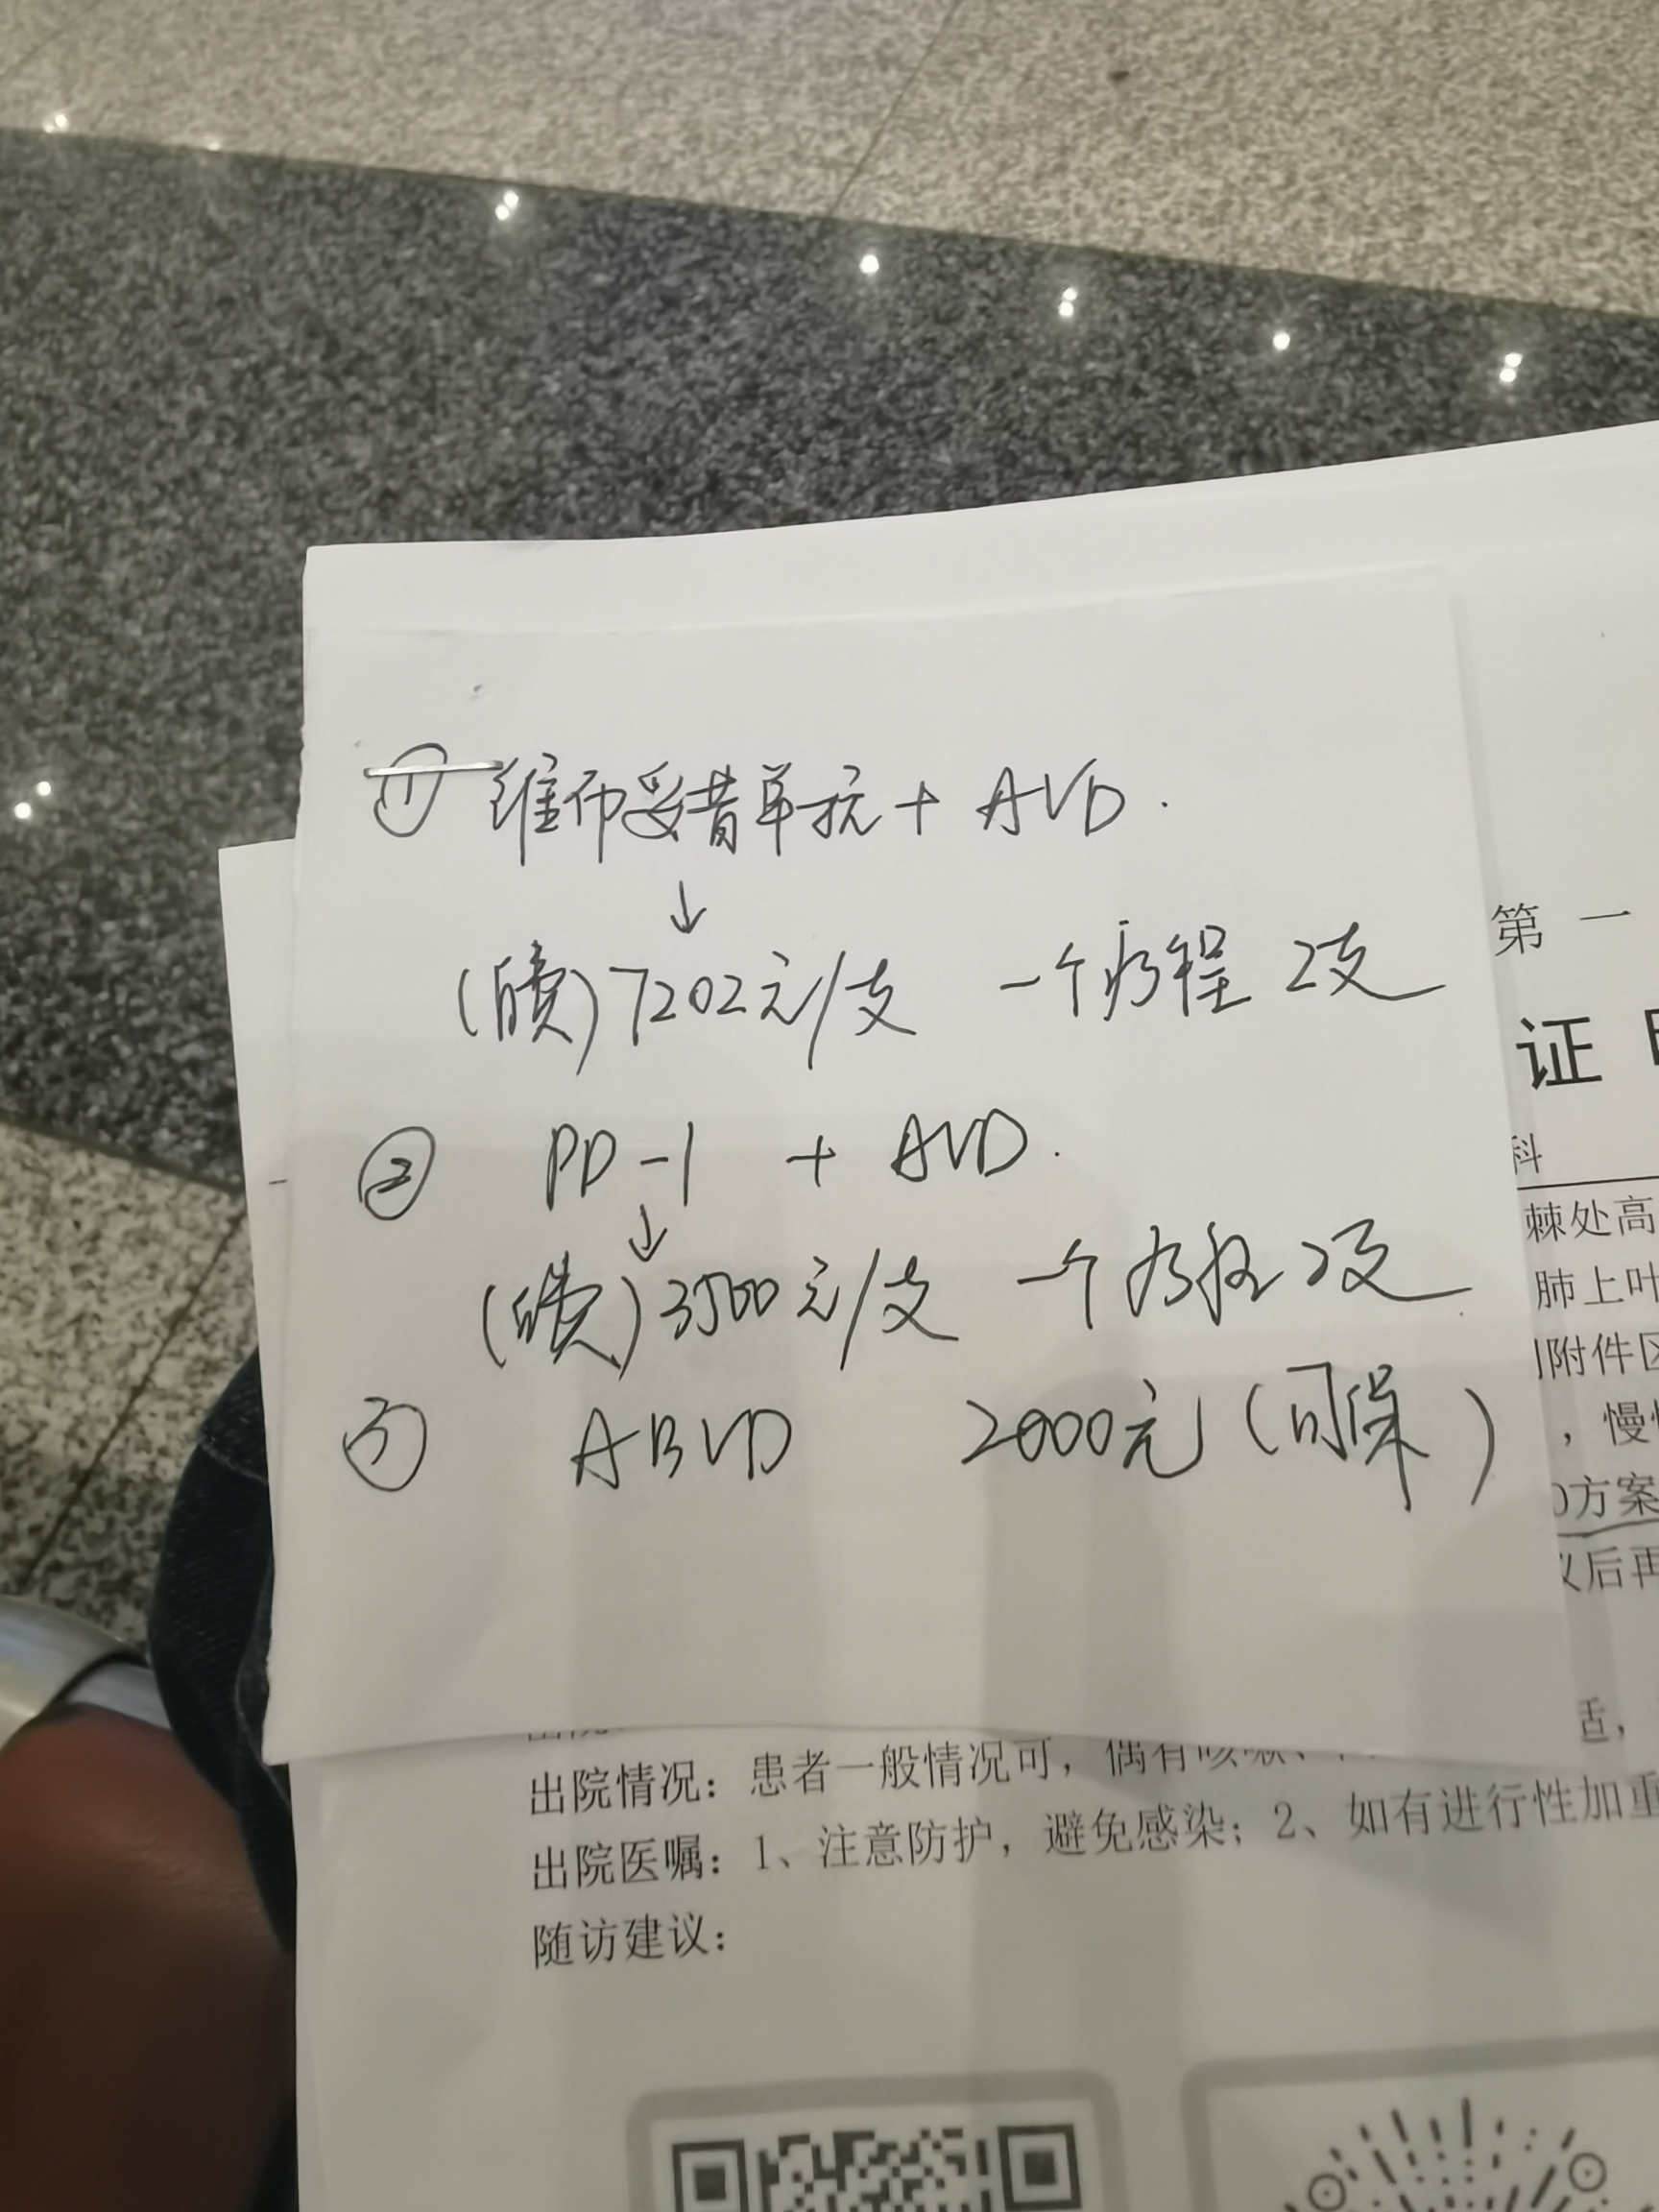 ① 维布妥昔单抗 + AVD.
↓
(自费) 7202元/支 一个疗程 2支
② PD-1 + AVD.
↓
(自费) 3500元/支 一个疗程 2支
③ ABVD 2000元 (可保)
第 一
证
科
棘处高
肺上叶
附件区
，慢
D方案
议后再
适，
出院情况：患者一般情况可，偶有咳嗽、
出院医嘱：1、注意防护，避免感染；2、如有进行性加重
随访建议：